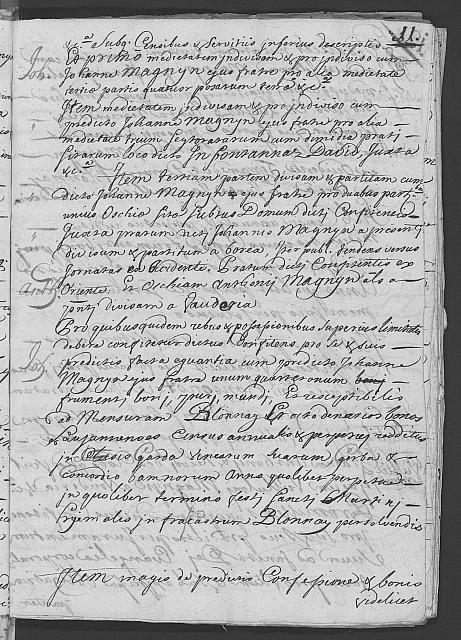 11.
&c.ᵃ Subq. Censibus & Servitiis inferius descriptis
Et primo medietatem indivisam & pro indiviso cum
Johanne Magnyn ejus fratre pro alia medietate
tertie partis quatuor posarum terre &c.ᵃ
Item medietatem indivisam & pro indiviso cum
predicto Johanne Magnyn ejus fratre pro alia
medietate trium Seytorarum cum dimidia prati
sitarum loco dicto In fontannaz David, Juxta
&c.ᵃ
Item tertiam partem divisam & partitam cum
dicto Johanne Magnyn ejus fratre pro duabus parti
unius Oschie site Subtus Domum dicti Confitentis
Juxta pratum dicti Johannis Magnyn a
divisum & partitum a borea. Iter publ. tendens versus
Jornatas ab Occidente. Pratum dicti Confitentis ex
Oriente. Et Oschiam Anthonij Magnyn
divisam a Vauderia
Pro quibusquidem rebus & possessionibus superius limitatis
debere confitetur dictus Confitens pro se & suis
predictis facta equantia cum predicto Johanne
Magnyn ejus fratre unum quarteronum
frumenti, boni, puri, mundi, & receptibilis
ad Mensuram Blonnay Et octo denarios bonos
Lausannenses Census annualis & perpetui redditus
in Garda vinearum suarum gerba &
Concordio bannorum Anno quolibet perpetue
in quolibet termino festi Sancti Martini
hyemalis in fracastrum Blonnay persolvendis
Item magis de predictis Confessione & bonis
videlicet